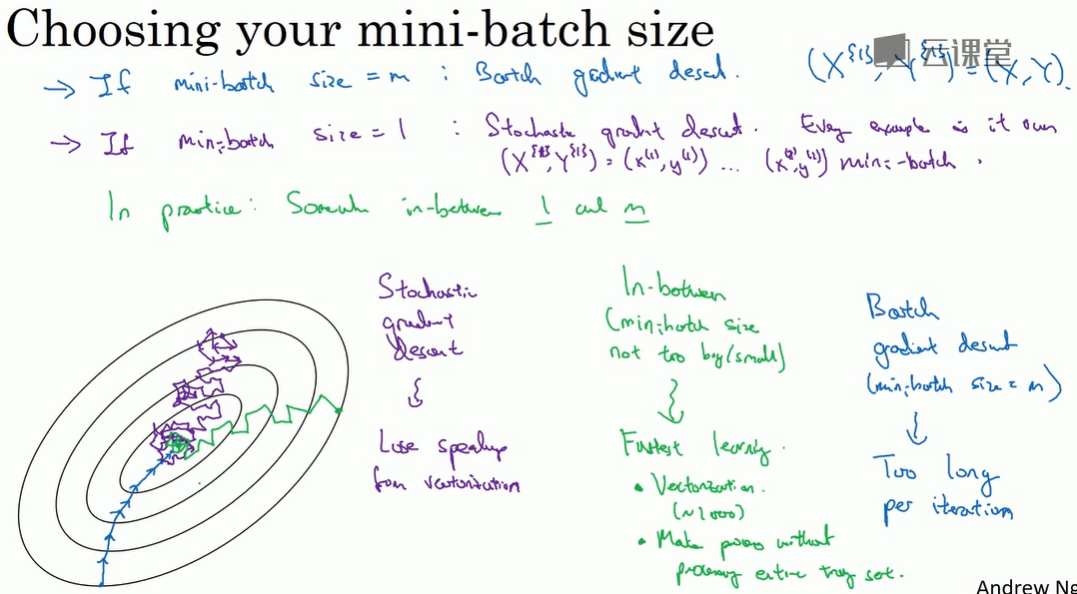 Choosing your mini-batch size
云课堂
→ If mini-batch size = m : Batch gradient descent. (X^{1}, Y^{1}) = (X, Y).
→ If mini-batch size = 1 : Stochastic gradient descent. Every example is it own
(X^{1}, Y^{1}) = (x^(1), y^(1)) ... mini-batch.
In practice: Somewhere in-between 1 and m
Stochastic
gradient
descent
Lose speedup
from vectorization
In-between
(mini-batch size
not too big/small)
Fastest learning.
• Vectorization.
(~1000)
• Make progress without
processing entire training set.
Batch
gradient descent
(mini-batch size = m)
Too long
per iteration
Andrew Ng